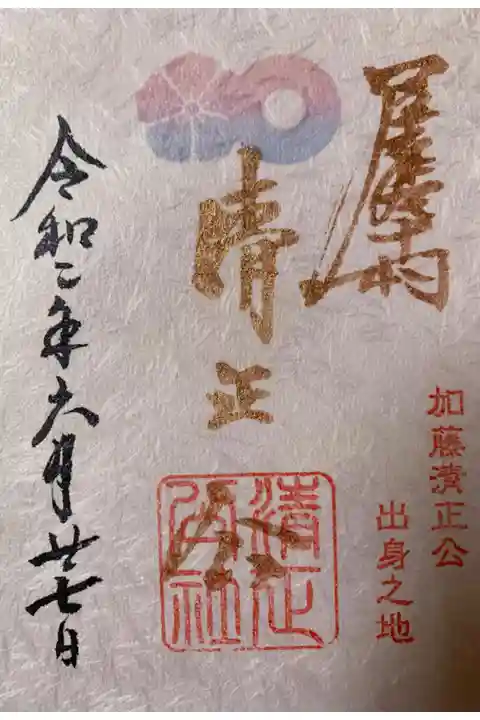 加藤清正公
出身之地
清正公
清正公社
令和二年六月廿七日